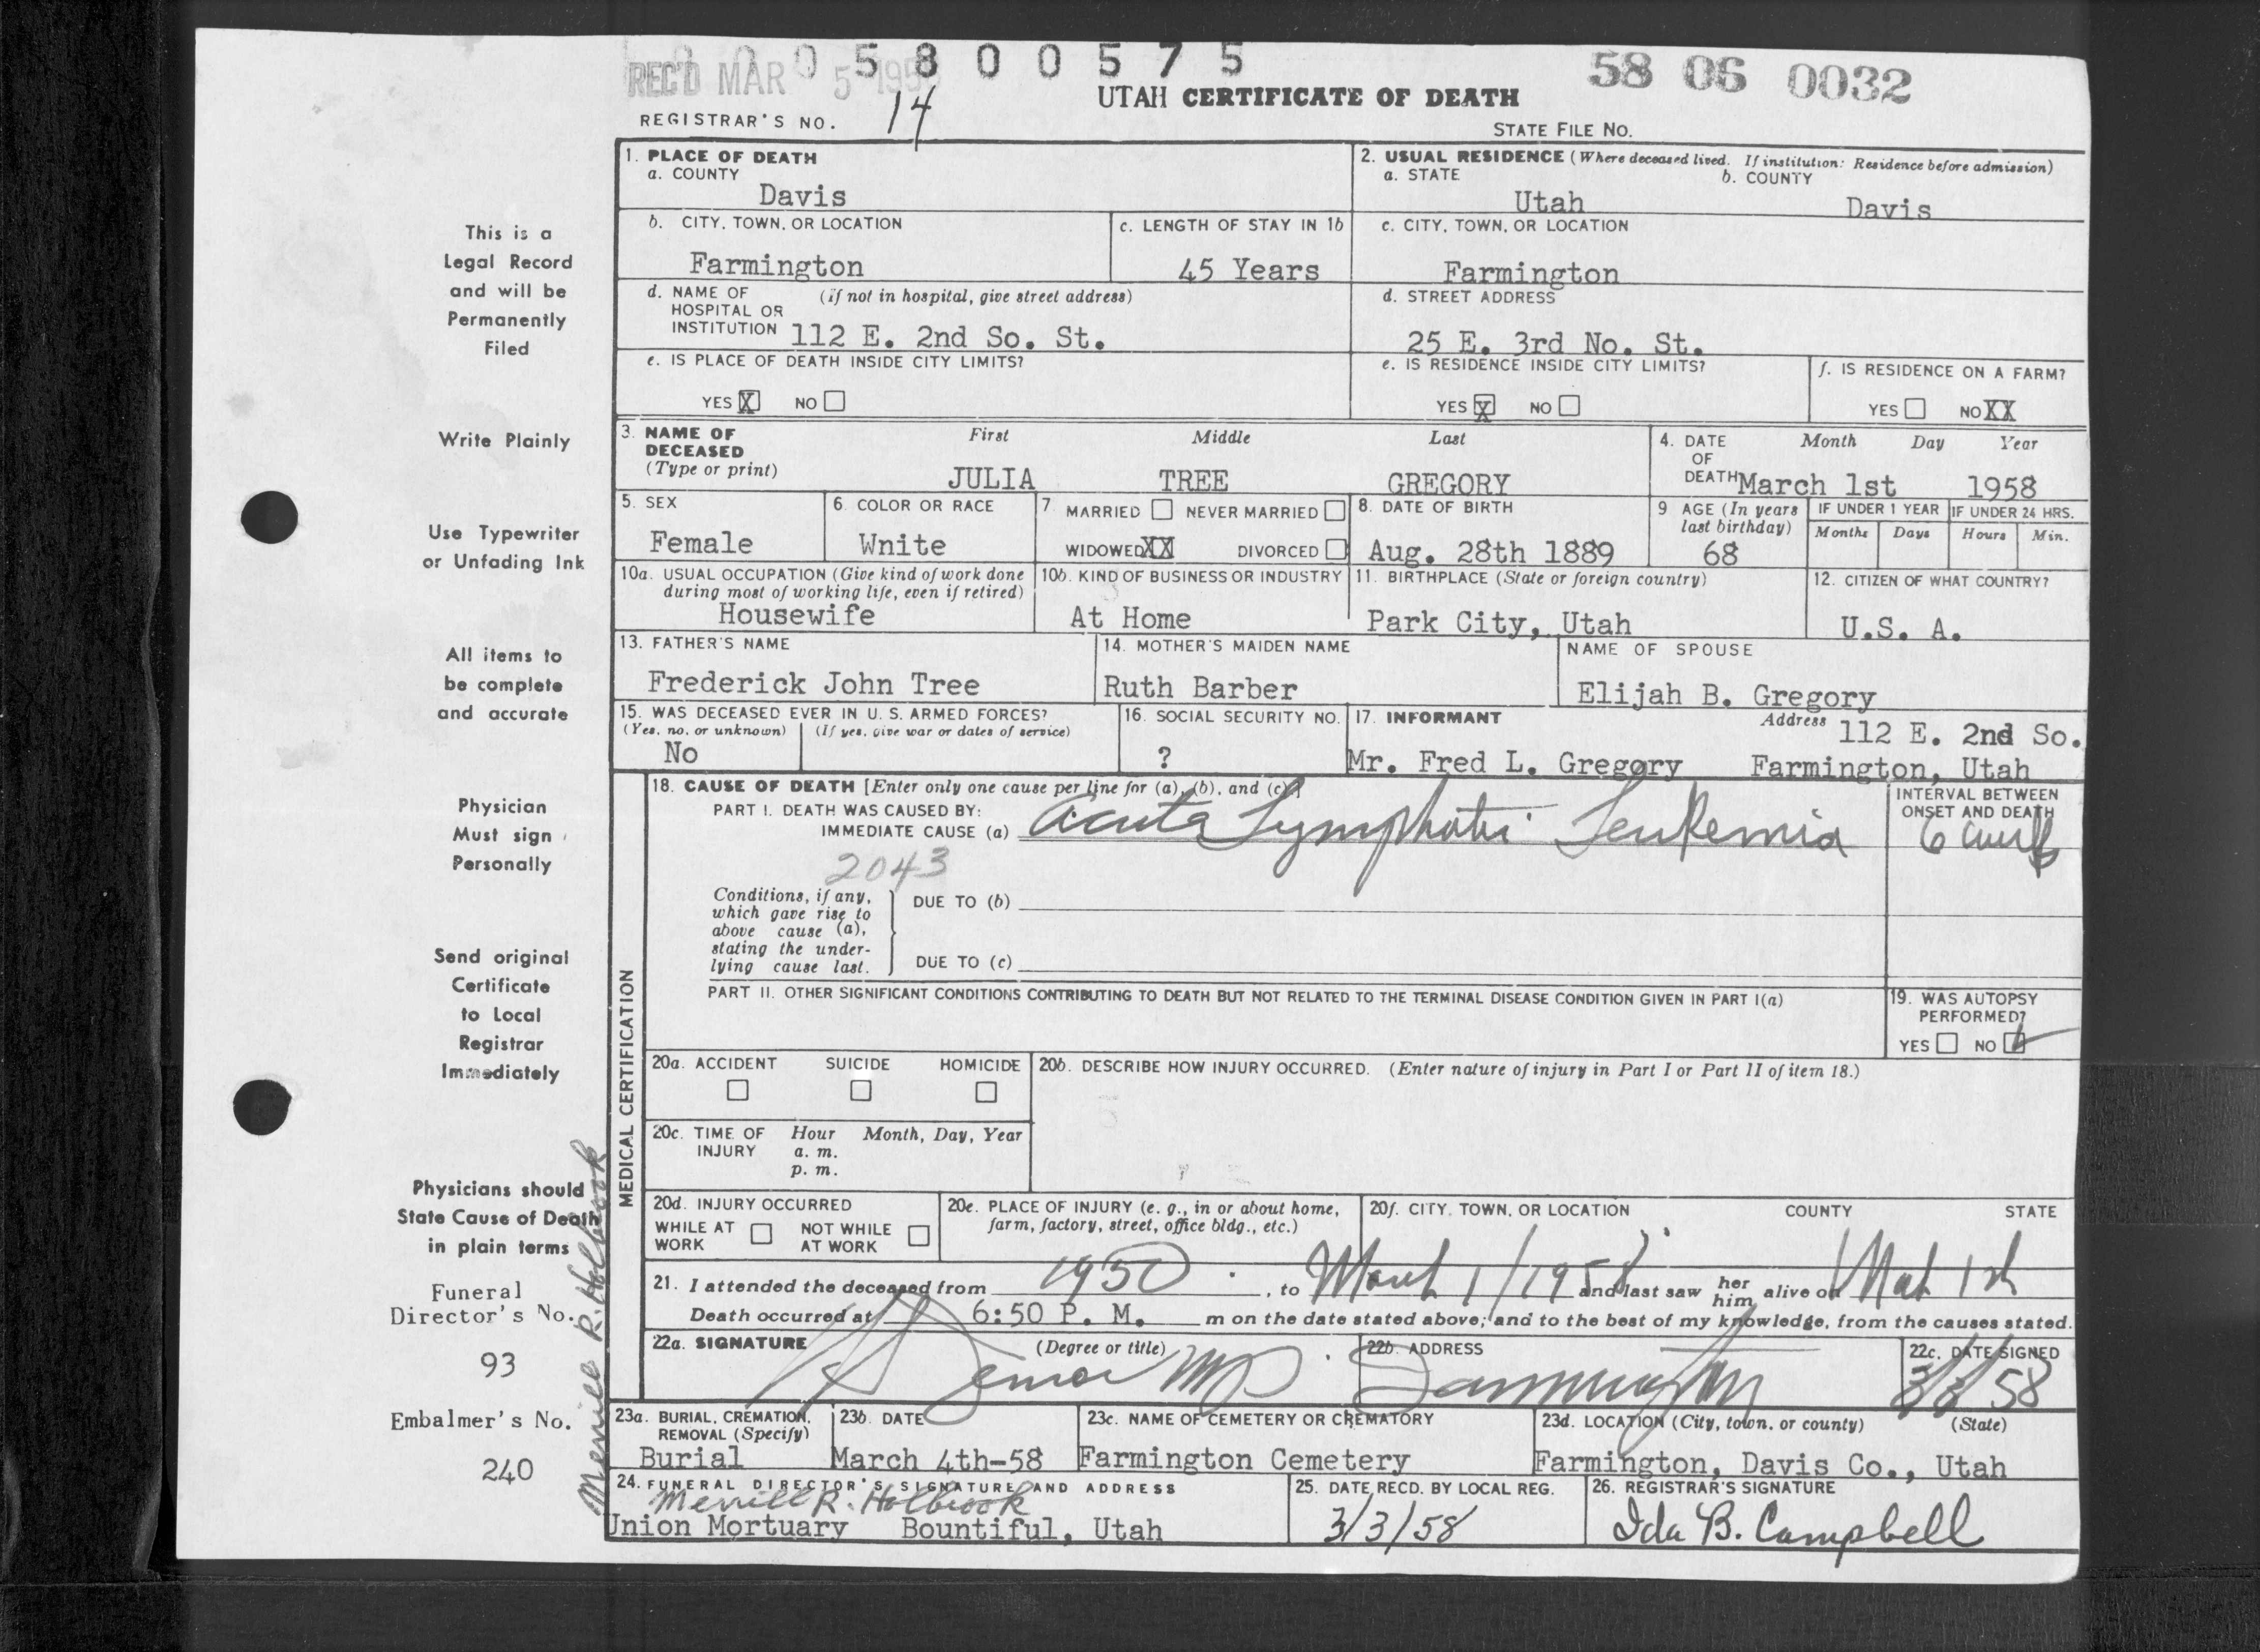 REC'D MAR 5 195
0 5 8 0 0 5 7 5
58 06 0032
UTAH CERTIFICATE OF DEATH
REGISTRAR'S NO. 14
STATE FILE NO.
1. PLACE OF DEATH
a. COUNTY
Davis
2. USUAL RESIDENCE (Where deceased lived. If institution: Residence before admission)
a. STATE
Utah
b. COUNTY
Davis
b. CITY, TOWN, OR LOCATION
Farmington
c. LENGTH OF STAY IN 1b
45 Years
c. CITY, TOWN, OR LOCATION
Farmington
d. NAME OF HOSPITAL OR INSTITUTION
(if not in hospital, give street address)
112 E. 2nd So. St.
d. STREET ADDRESS
25 E. 3rd No. St.
e. IS PLACE OF DEATH INSIDE CITY LIMITS?
YES X NO
e. IS RESIDENCE INSIDE CITY LIMITS?
YES X NO
f. IS RESIDENCE ON A FARM?
YES NO XX
3. NAME OF DECEASED
(Type or print)
First Middle Last
JULIA TREE GREGORY
4. DATE OF DEATH
Month Day Year
March 1st 1958
5. SEX
Female
6. COLOR OR RACE
Wnite
7. MARRIED NEVER MARRIED
WIDOWED XX DIVORCED
8. DATE OF BIRTH
Aug. 28th 1889
9 AGE (In years last birthday)
68
IF UNDER 1 YEAR
Months Days
IF UNDER 24 HRS.
Hours Min.
10a. USUAL OCCUPATION (Give kind of work done during most of working life, even if retired)
Housewife
10b. KIND OF BUSINESS OR INDUSTRY
At Home
11. BIRTHPLACE (State or foreign country)
Park City, Utah
12. CITIZEN OF WHAT COUNTRY?
U.S. A.
13. FATHER'S NAME
Frederick John Tree
14. MOTHER'S MAIDEN NAME
Ruth Barber
NAME OF SPOUSE
Elijah B. Gregory
15. WAS DECEASED EVER IN U. S. ARMED FORCES?
(Yes, no, or unknown) (If yes, give war or dates of service)
No
16. SOCIAL SECURITY NO.
?
17. INFORMANT
Mr. Fred L. Gregory
Address 112 E. 2nd So.
Farmington, Utah
18. CAUSE OF DEATH [Enter only one cause per line for (a), (b), and (c)]
PART I. DEATH WAS CAUSED BY:
IMMEDIATE CAUSE (a) Acute Lymphatic Leukemia
2043
INTERVAL BETWEEN ONSET AND DEATH
6
Conditions, if any, which gave rise to above cause (a), stating the underlying cause last.
DUE TO (b)
DUE TO (c)
PART II. OTHER SIGNIFICANT CONDITIONS CONTRIBUTING TO DEATH BUT NOT RELATED TO THE TERMINAL DISEASE CONDITION GIVEN IN PART I(a)
19. WAS AUTOPSY PERFORMED?
YES NO
MEDICAL CERTIFICATION
20a. ACCIDENT SUICIDE HOMICIDE
20b. DESCRIBE HOW INJURY OCCURRED. (Enter nature of injury in Part I or Part II of item 18.)
20c. TIME OF INJURY
Hour Month, Day, Year
a. m.
p. m.
20d. INJURY OCCURRED
WHILE AT WORK NOT WHILE AT WORK
20e. PLACE OF INJURY (e. g., in or about home, farm, factory, street, office bldg., etc.)
20f. CITY, TOWN, OR LOCATION COUNTY STATE
21. I attended the deceased from 1950, to March 1/1958 and last saw her him alive on Mch 1st
Death occurred at 6:50 P. M. m on the date stated above; and to the best of my knowledge, from the causes stated.
22a. SIGNATURE
(Degree or title)
MD
22b. ADDRESS
Farmington
22c. DATE SIGNED
3/3/58
23a. BURIAL, CREMATION, REMOVAL (Specify)
Burial
23b. DATE
March 4th-58
23c. NAME OF CEMETERY OR CREMATORY
Farmington Cemetery
23d. LOCATION (City, town, or county) (State)
Farmington, Davis Co., Utah
24. FUNERAL DIRECTOR'S SIGNATURE AND ADDRESS
Merrill R. Holbrook
Union Mortuary Bountiful, Utah
25. DATE RECD. BY LOCAL REG.
3/3/58
26. REGISTRAR'S SIGNATURE
Ida B. Campbell
This is a
Legal Record
and will be
Permanently
Filed
Write Plainly
Use Typewriter
or Unfading Ink
All items to
be complete
and accurate
Physician
Must sign
Personally
Send original
Certificate
to Local
Registrar
Immediately
Physicians should
State Cause of Death
in plain terms
Funeral
Director's No.
93
Embalmer's No.
240
Merrill R. Holbrook